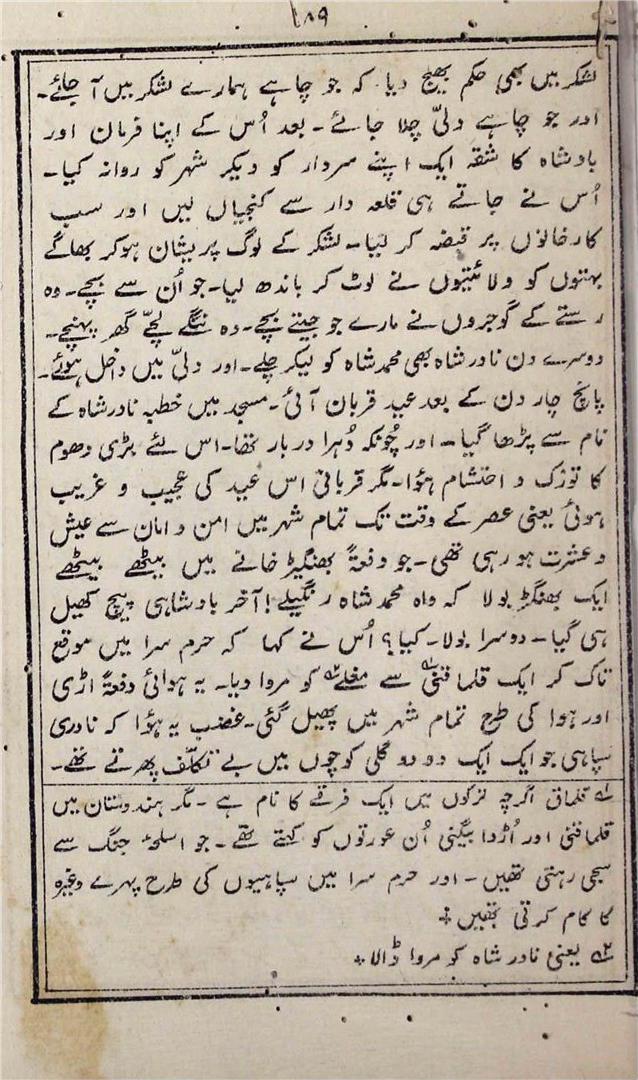 ۱۸۹
لشکر میں بھی حکم بھیج دیا۔ کہ جو چاہے ہمارے لشکر میں آ جائے۔
اور جو چاہے دلّی چلا جائے۔ بعد اُس کے اپنا فرمان اور
بادشاہ کا شقہ ایک اپنے سردار کو دیکر شہر کو روانہ کیا۔
اُس نے جاتے ہی قلعہ دار سے کنجیاں لیں اور سب
کارخانوں پر قبضہ کر لیا۔ لشکر کے لوگ پریشان ہوکر بھاگے
بہتوں کو ولائتیوں نے لوٹ کر باندھ لیا۔ جو اُن سے بچے۔ وہ
رستے کے گوجروں نے مارے جو جیتے بچے۔ وہ ننگے لُچّے گھر پہنچے۔
دوسرے دن نادر شاہ بھی محمد شاہ کو لیکر چلے۔ اور دلّی میں داخل ہوئے۔
پانچ چار دن کے بعد عید قربان آئی۔ مسجد میں خطبہ نادر شاہ کے
نام سے پڑھا گیا۔ اور چُونکہ دُہرا دربار تھا۔ اس لئے بڑی دھوم
کا توزک و احتشام ہؤا۔ مگر قربانی اس عید کی عجیب و غریب
ہوئی یعنی عصر کے وقت تک تمام شہر میں امن و امان سے عیش
و عشرت ہو رہی تھی۔ جو دفعۃً بھنگیڑ خانے میں بیٹھے بیٹھے
ایک بھنگڑ بولا کہ واہ محمد شاہ رنگیلے! آخر بادشاہی پیچ کھیل
ہی گیا۔ دوسرا بولا۔ کیا؟ اُس نے کہا کہ حرم سرا میں موقع
تاک کر ایک قلماقنی؎۱ سے مغلے؎۲ کو مروا دیا۔ یہ ہوائی دفعۃً اڑی
اور ہوا کی طرح تمام شہر میں پھیل گئی۔ غضب یہ ہؤا کہ نادری
سپاہی جو ایک ایک دو دو گلی کوچوں میں بے تکلّف پھرتے تھے۔
؎۱ قلماق اگرچہ ترکوں میں ایک فرقے کا نام ہے۔ مگر ہندوستان میں
قلماقنی اور اُڑدا بیگنی اُن عورتوں کو کہتے تھے۔ جو اسلحۂ جنگ سے
سجی رہتی تھیں۔ اور حرم سرا میں سپاہیوں کی طرح پہرے وغیرہ
کا کام کرتی تھیں ؞
؎۲ یعنی نادر شاہ کو مروا ڈالا ؞